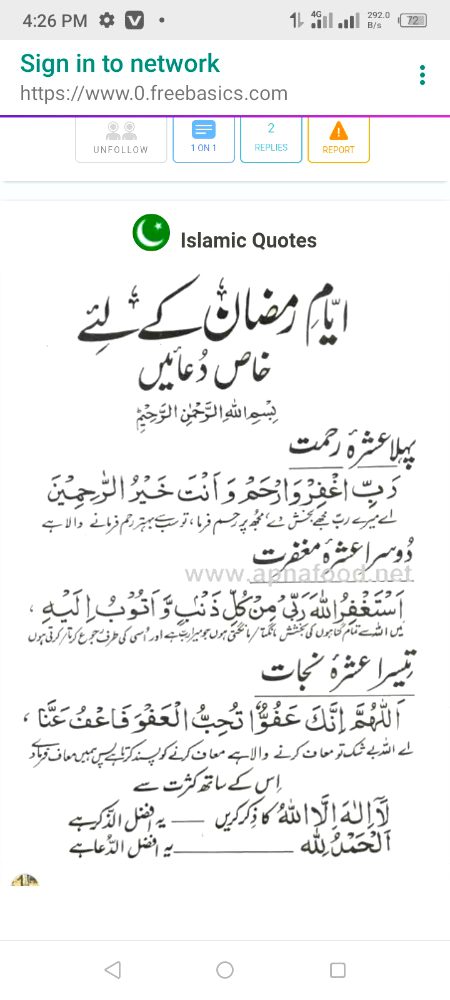 4:26 PM
4G
292.0 B/s
72
Sign in to network
https://www.0.freebasics.com
UNFOLLOW
1 ON 1
2
REPLIES
REPORT
Islamic Quotes
ایّامِ رمضان کے لئے
خاص دُعائیں
بِسْمِ اللهِ الرَّحْمٰنِ الرَّحِيْمِ
پہلا عشرۂ رحمت
رَبِّ اغْفِرْ وَارْحَمْ وَاَنْتَ خَيْرُ الرّٰحِمِيْنَ
اے میرے رب مجھے بخش دے، مجھ پر رحم فرما، تو سب سے بہتر رحم فرمانے والا ہے
دُوسرا عشرۂ مغفرت
www.apnafood.net
اَسْتَغْفِرُ اللهَ رَبِّىْ مِنْ كُلِّ ذَنْۢبٍ وَّاَتُوْبُ اِلَيْهِ،
میں اللہ سے تمام گناہوں کی بخشش مانگتا / مانگتی ہوں جو میرا رب ہے اور اُسی کی طرف رجوع کرتا / کرتی ہوں
تیسرا عشرۂ نجات
اَللّٰهُمَّ اِنَّكَ عَفُوٌّ تُحِبُّ الْعَفْوَ فَاعْفُ عَنَّا،
اے اللہ بے شک تو معاف کرنے والا ہے معاف کرنے کو پسند کرتا ہے پس ہمیں معاف فرما دے
اِس کے ساتھ کثرت سے
لَآ اِلٰهَ اِلَّا اللهُ کا ذکر کریں — یہ افضل الذکر ہے
اَلْحَمْدُ لِلّٰه ــــــــــ یہ افضل الدُّعا ہے